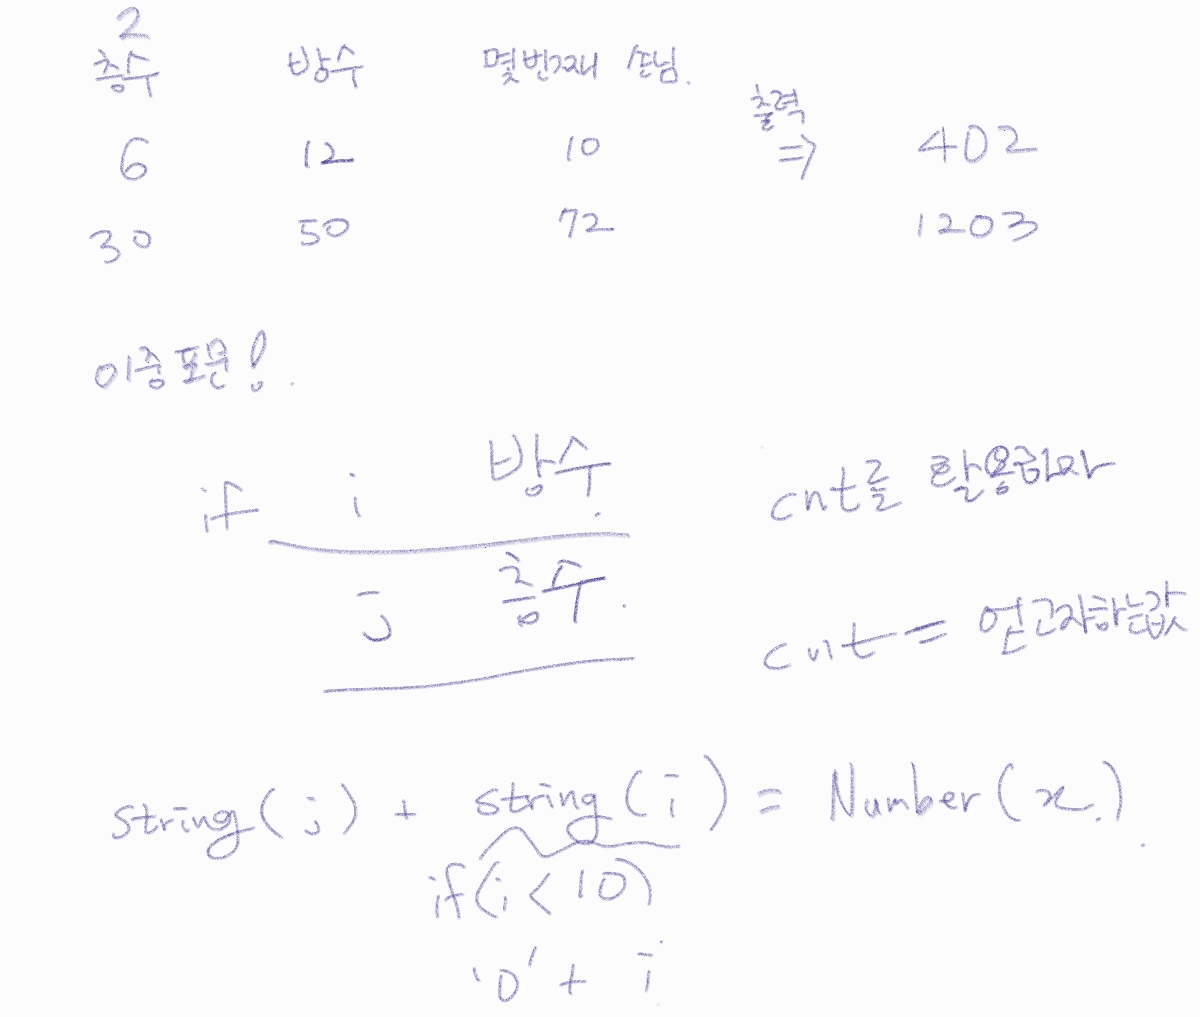 2
층수 방수 몇번째 손님.
6 12 10 출력 ⇒ 402
30 50 72 1203
이중포문!
if i 방수.
cnt를 활용하자
j 층수.
cnt = 얻고자하는값
string(j) + string(i) = Number(x.).
if(i < 10)
'0' + i